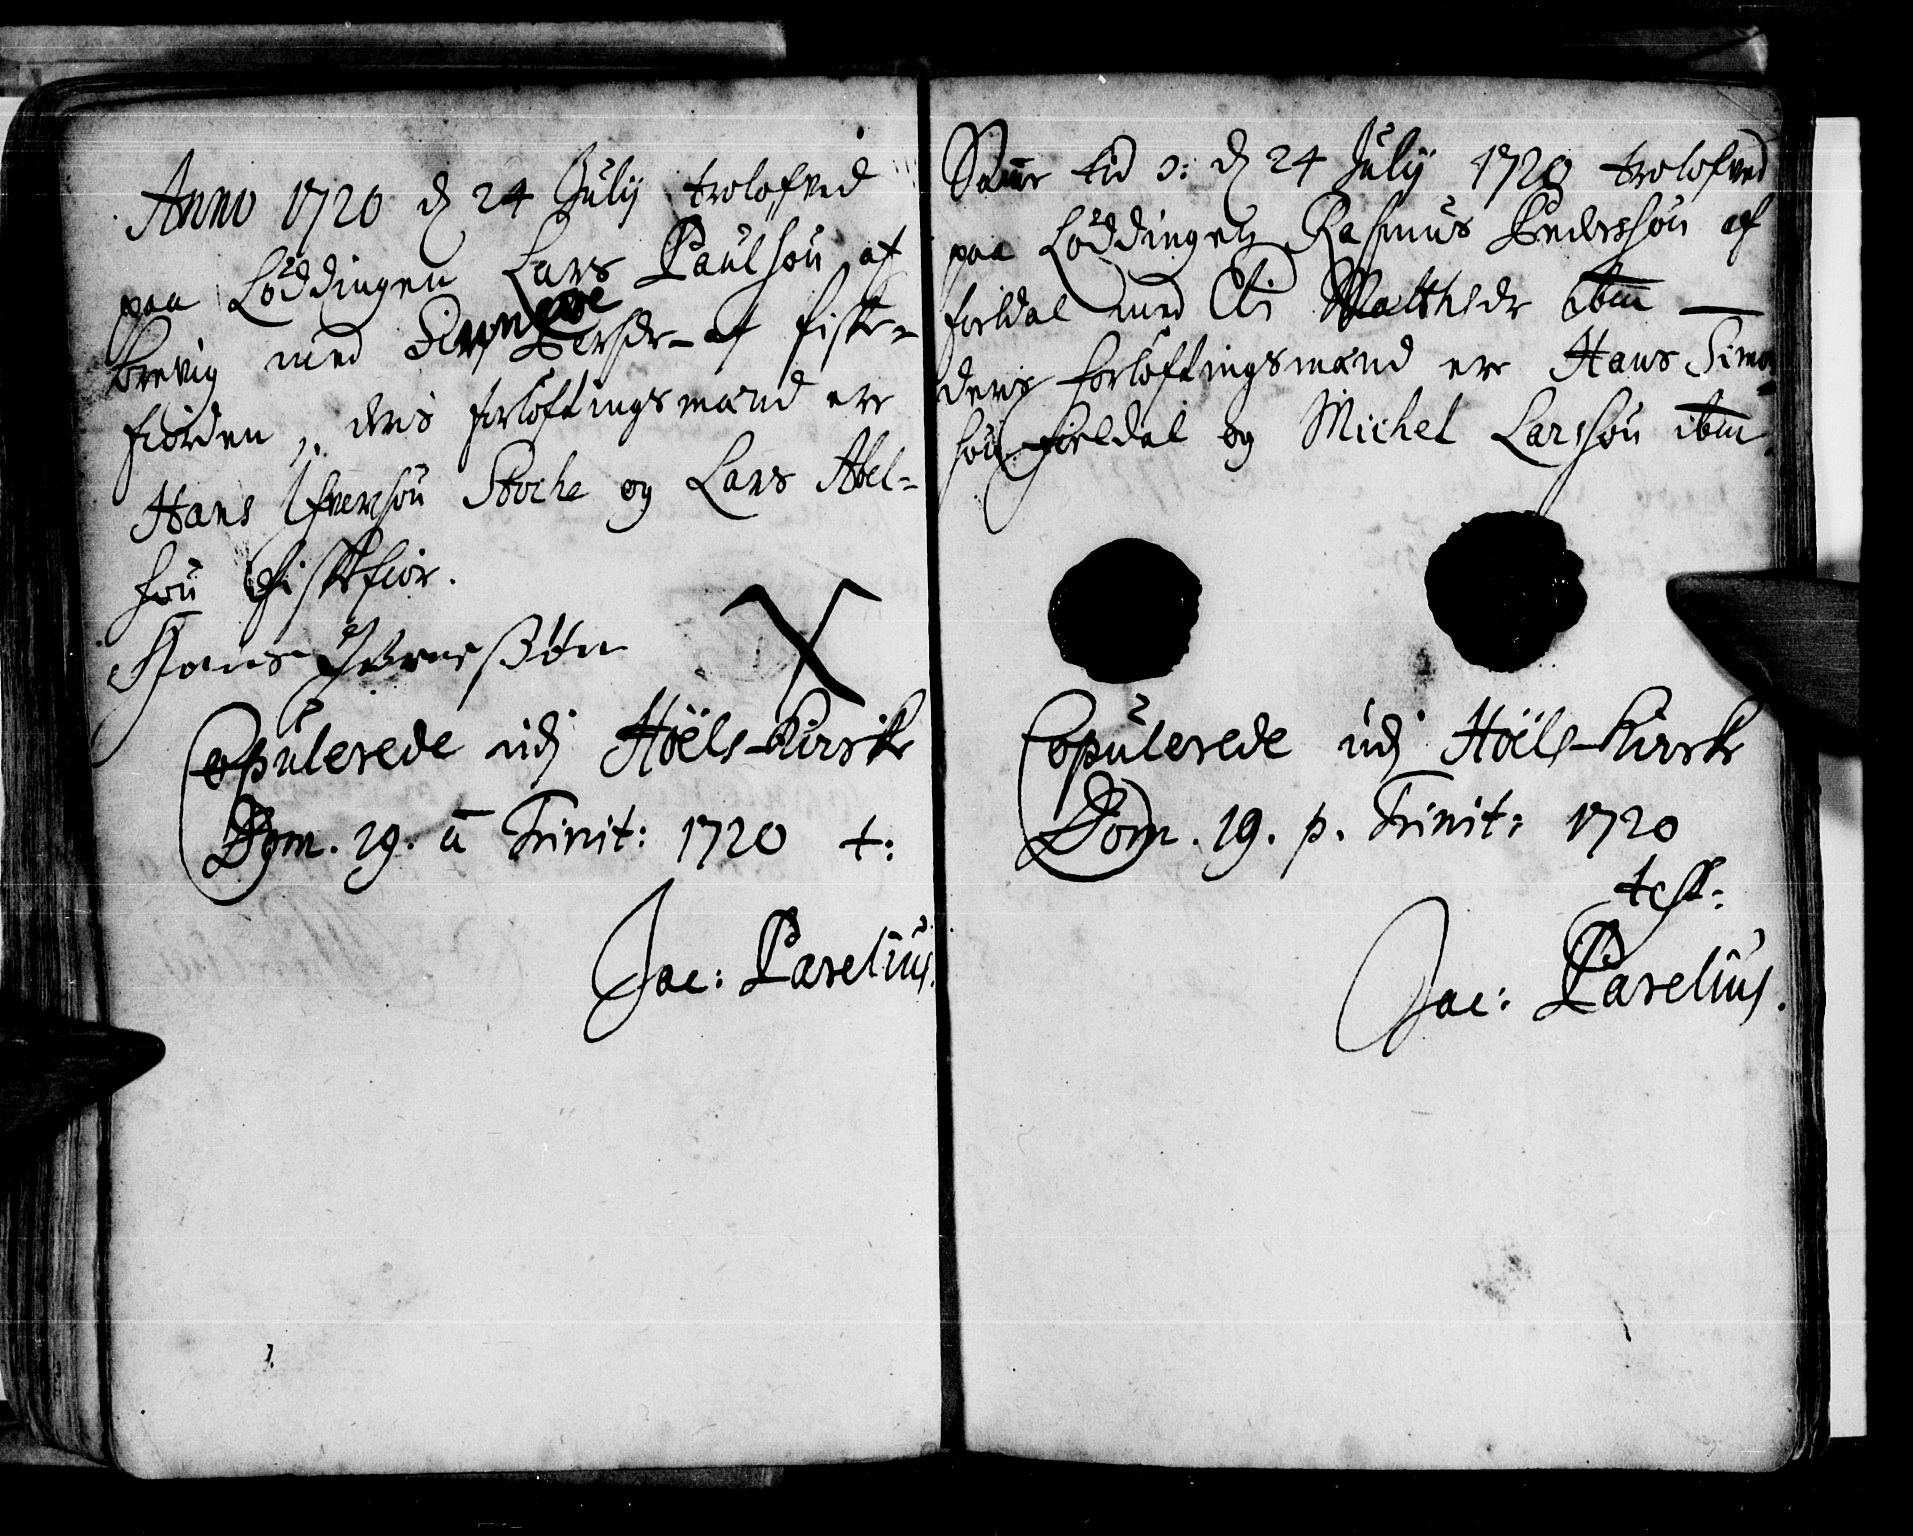 Anno 1720 d 24 Julij trolofved
paa Löddingen Lars Paulsøn af
brevig med Persdr af fiske-
fiorden, deris forlöftingsmænd ere
Hans Ifversøn Stoche og Lars Abel-
søn fiskfior.
Hans Iversøn
Copulerede udj Höels-Kircke
Dom. 19. à Trinit: 1720 t:
Jac: Parelius.
Samme tid ɔ: d 24 Julij 1720 trolofved
paa Löddingen Rasmus Pedersøn af
forldal med Eli Mathisdr ibm
deris forlöftingsmænd ere Hans Simon-
søn forldal og Michel Larssøn ibm
Copulerede udj Höels-Kircke
Dom. 19. p. Trinit: 1720
test:
Jac: Parelius.